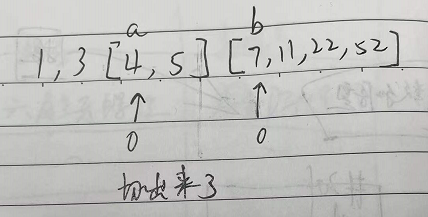 a b
1, 3 [4, 5] [7, 11, 22, 52]
↑ ↑
0 0
切出来了